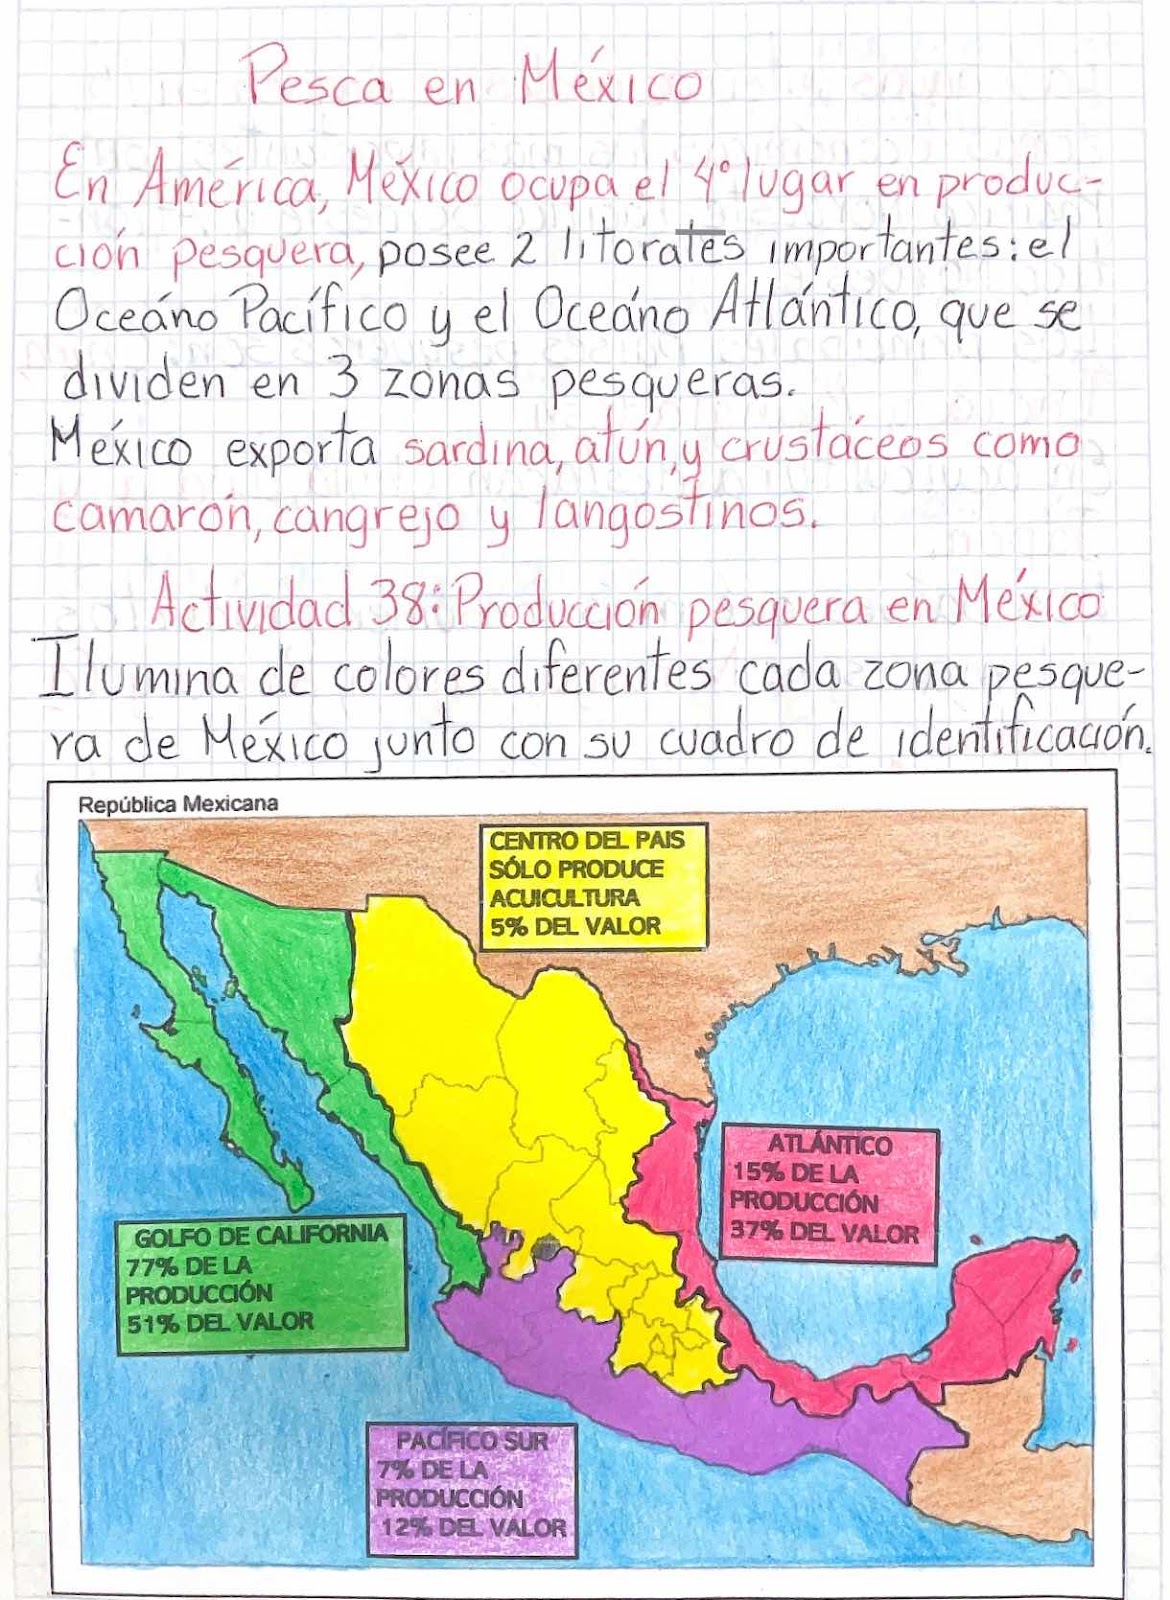 Pesca en México
En América, México ocupa el 4° lugar en produc-
ción pesquera, posee 2 litorales importantes: el
Oceáno Pacífico y el Oceáno Atlántico, que se
dividen en 3 zonas pesqueras.
México exporta sardina, atún, y crustáceos como
camarón, cangrejo y langostinos.
Actividad 38: Producción pesquera en México
Ilumina de colores diferentes cada zona pesque-
ra de México junto con su cuadro de identificación.
República Mexicana
CENTRO DEL PAIS
SÓLO PRODUCE
ACUICULTURA
5% DEL VALOR
ATLÁNTICO
15% DE LA
PRODUCCIÓN
37% DEL VALOR
GOLFO DE CALIFORNIA
77% DE LA
PRODUCCIÓN
51% DEL VALOR
PACÍFICO SUR
7% DE LA
PRODUCCIÓN
12% DEL VALOR